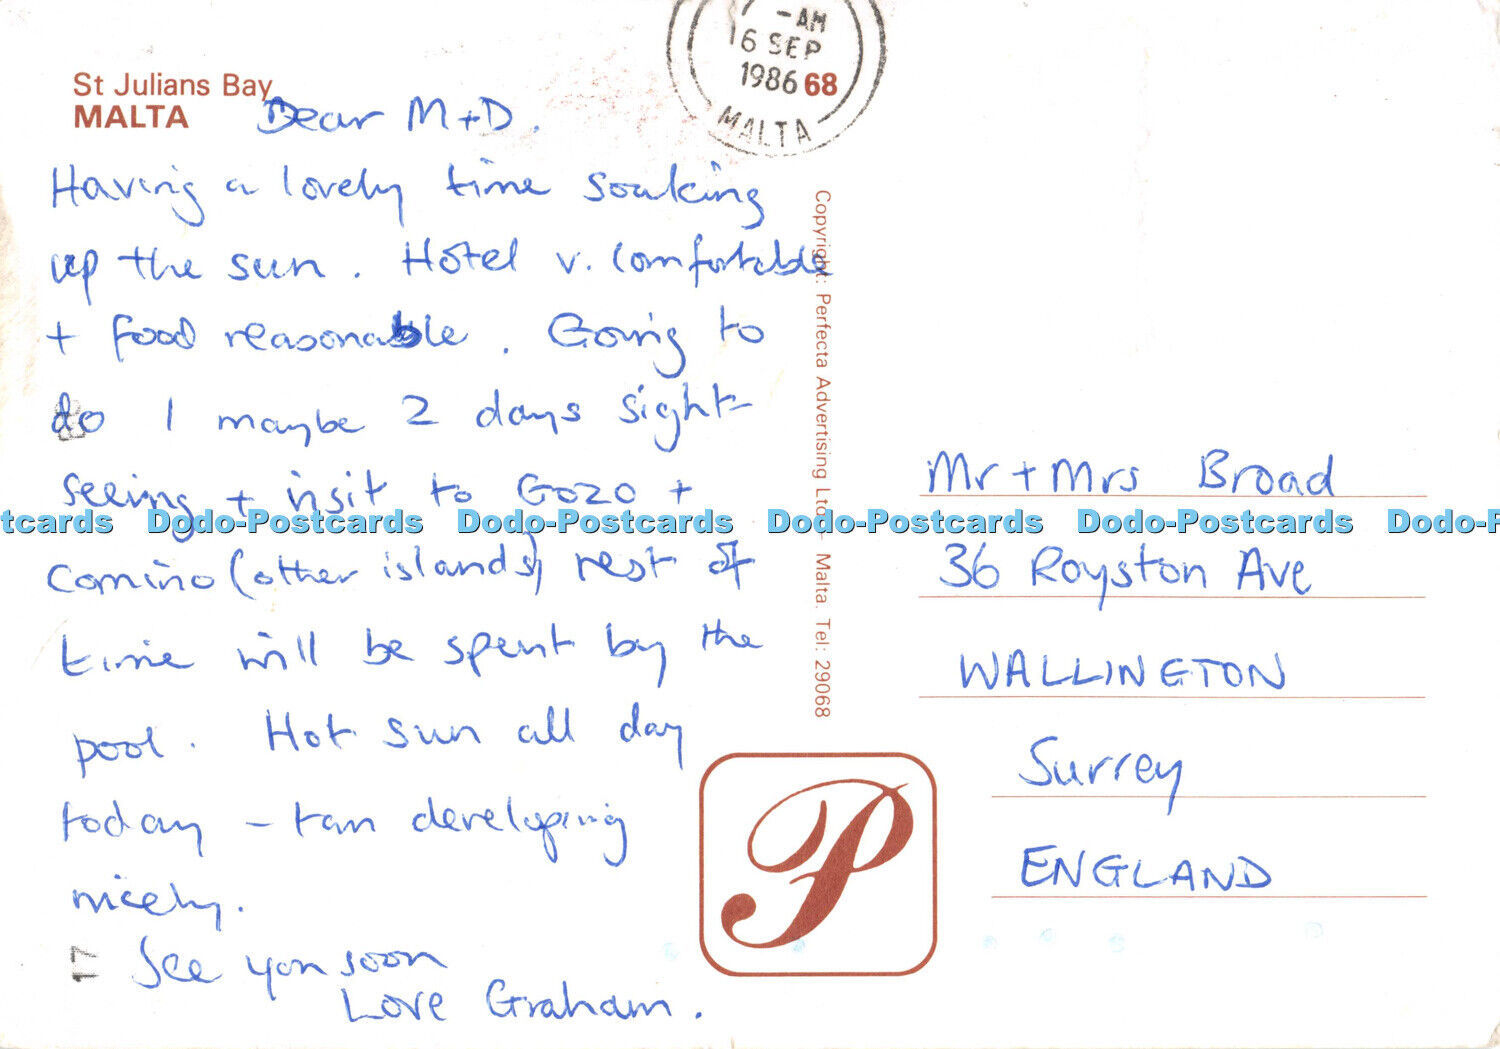 St Julians Bay
MALTA
7 -AM
16 SEP
1986 68
MALTA
Dear M+D.
Having a lovely time soaking
up the sun. Hotel v. comfortable
+ food reasonable. Going to
do 1 maybe 2 days sight-
seeing + visit to Gozo +
Comino (other islands) rest of
time will be spent by the
pool. Hot sun all day
today - tan developing
nicely.
See you soon
Love Graham.
17
Copyright: Perfecta Advertising Ltd - Malta. Tel: 29068
P
Mr + Mrs Broad
36 Royston Ave
WALLINGTON
Surrey
ENGLAND
tcards Dodo-Postcards Dodo-Postcards Dodo-Postcards Dodo-Postcards Dodo-P